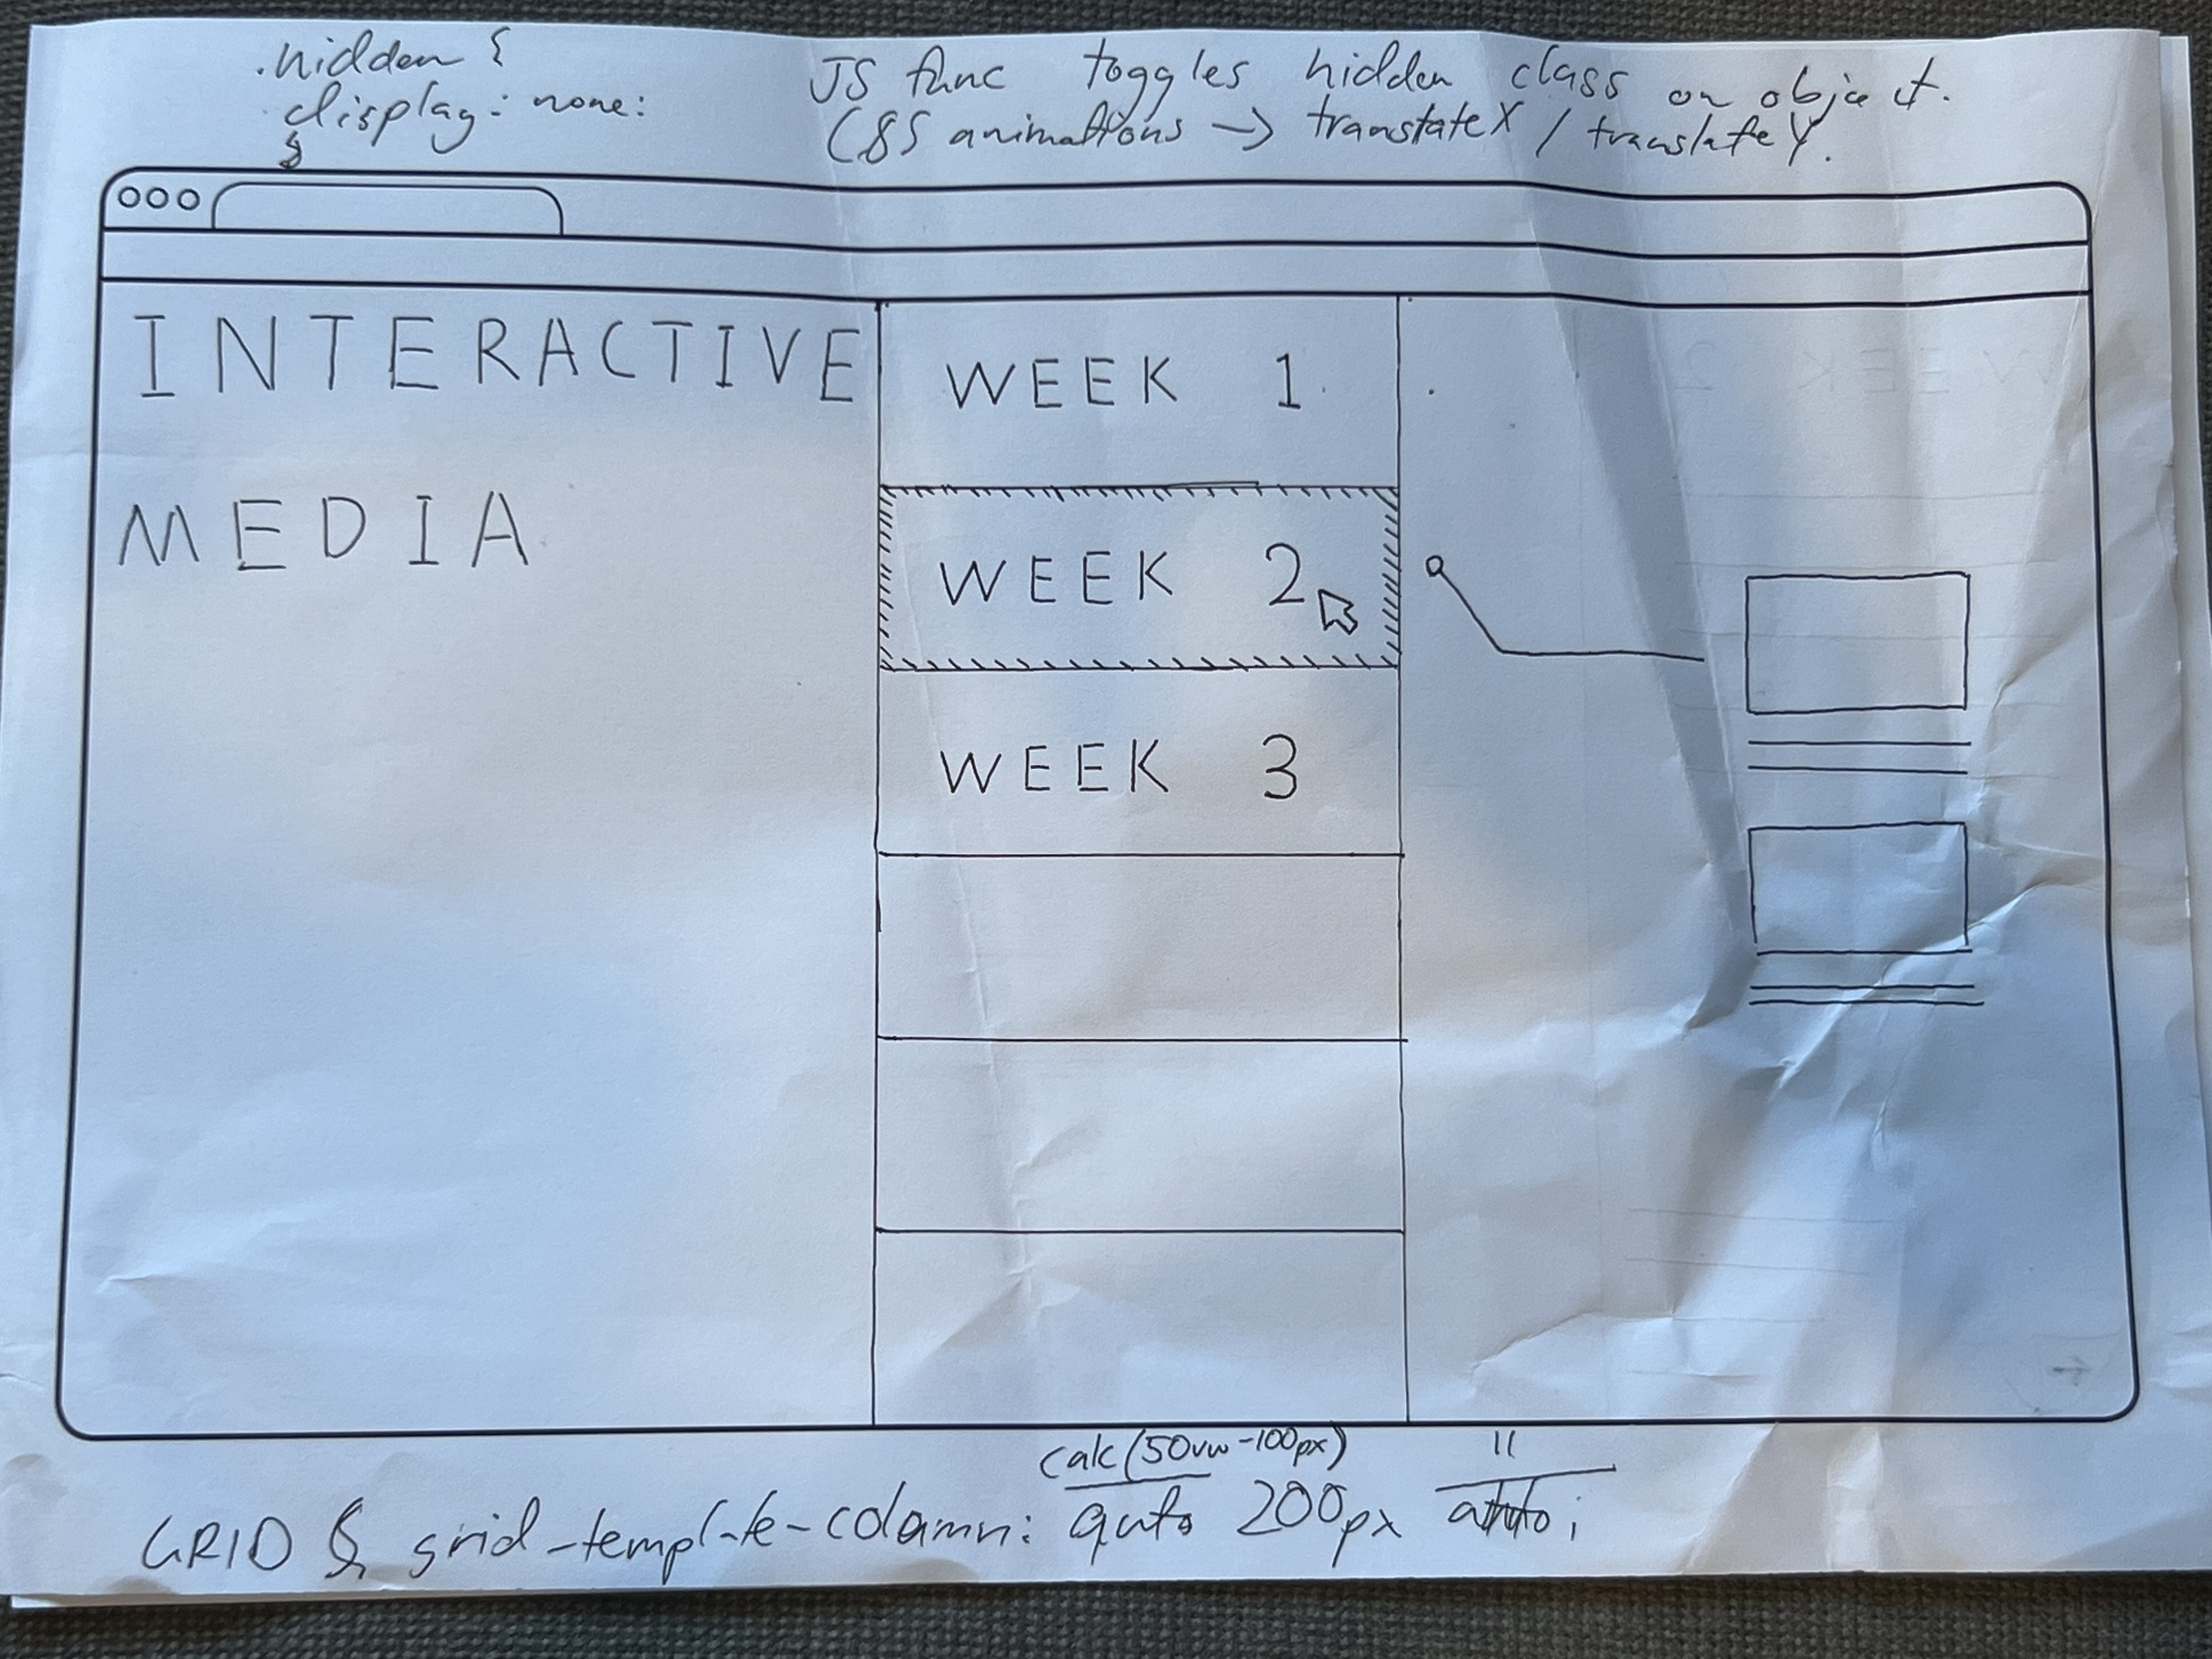 .hidden {
display: none:
}
JS func toggles hidden class on object.
CSS animations → translateX / translateY.
INTERACTIVE
MEDIA
WEEK 1
WEEK 2
WEEK 3
WEEK 2
calc(50vw-100px) 11
GRID & grid-template-column: auto 200px auto;